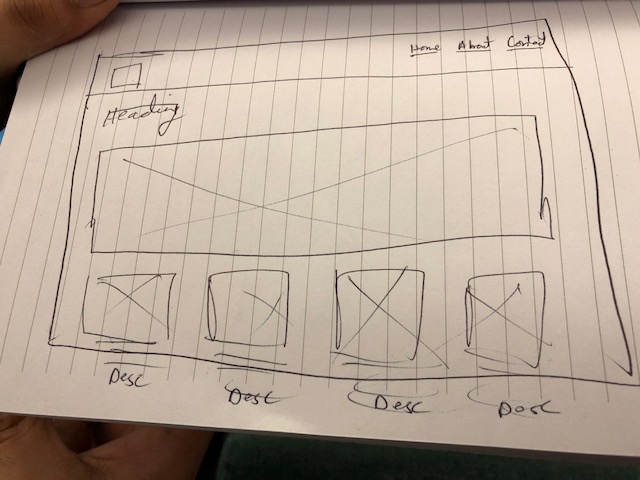 Home About Contact
Heading
Desc Desc Desc Desc